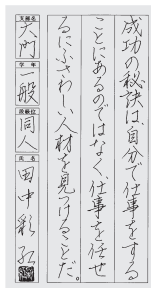 成功の秘訣は、自分で仕事をする
ことにあるのではなく、仕事を任せ
るにふさわしい人材を見つけることだ。
支部名
大門
学年
一般
段級位
同人
氏名
田中彩